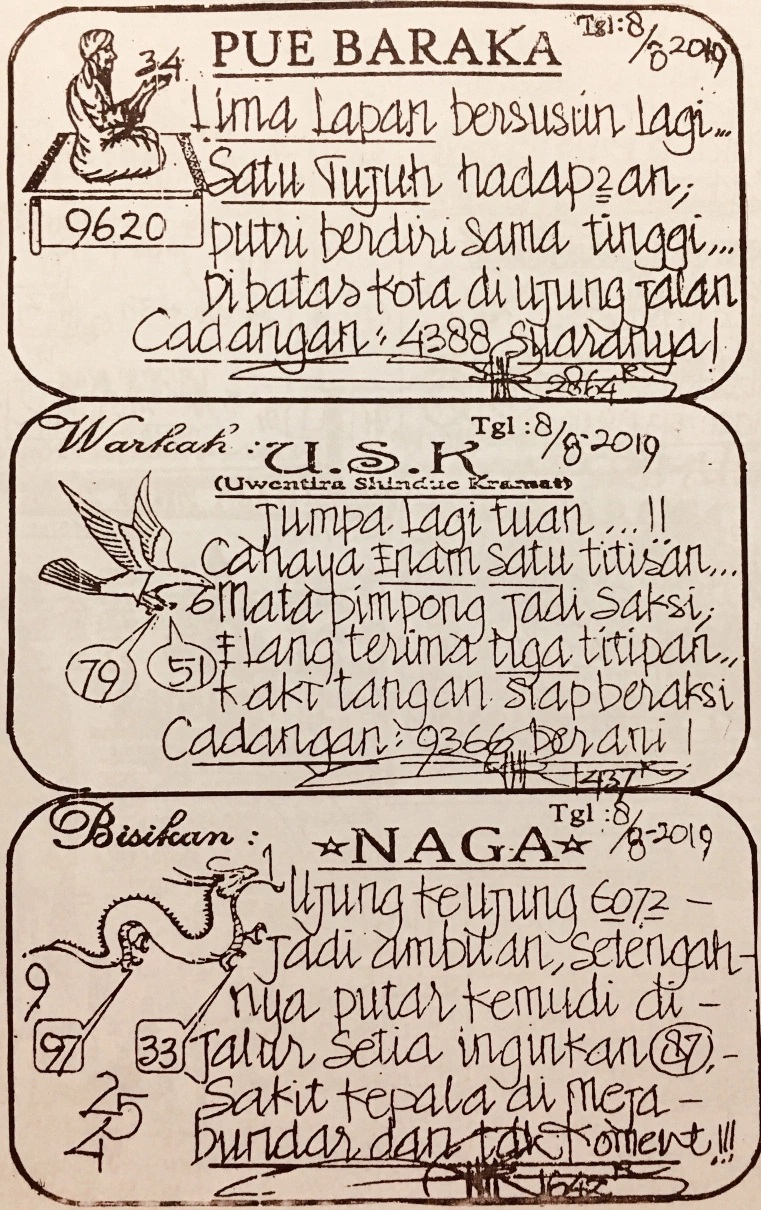 PUE BARAKA
Tgl: 8/8 2019
34
Lima Lapan bersusun lagi...
Satu Tujuh hadap2an;
9620
putri berdiri sama tinggi...
Dibatas kota di ujung jalan
Cadangan: 4388 suaranya!
2864
Warkah :
U.S.K
Tgl : 8/8-2019
(Uwentira Shindue Kramat)
Jumpa lagi tuan ...!!
Cahaya Enam satu titisan...
6
Mata pimpong jadi saksi;
79
51
Elang terima tiga titipan..
kaki tangan siap beraksi
Cadangan: 9366 berani!
1437
Bisikan :
☆NAGA☆
Tgl : 8/8-2019
1
Ujung keujung 6072 -
jadi ambilan, setengah-
9
nya putar kemudi di -
97
33
jalur setia inginkan 87,-
25
4
Sakit kepala di meja -
bundar dan tak koment!!!
1642